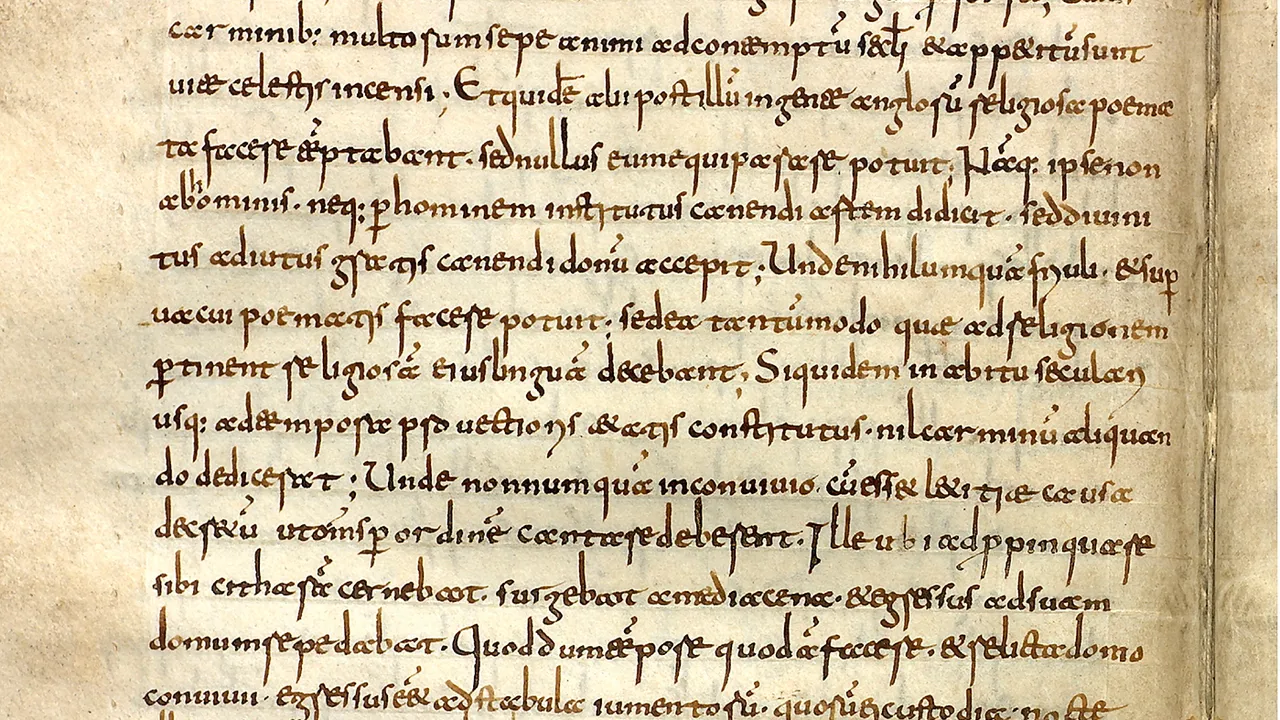 carminib; multorum sepe animi adcontemptū sæcli & app&itū sunt
uitae celestis incensi; Et quidē alii post illū in gente anglorū religiosa poema
ta facere tēptabant. sed nullus eum equiparare potuit; Nāq; ipse non
ab hominib. neq; p hominem institutus canendi artem didicit. sed diuini
tus adiutus gratis canendi donū accepit; Unde nihil umquā friuoli. & sup
uacui poematis facere potuit; sed ea tantūmodo quae ad religionem
ptinent religiosā eius linguā decebant; Siquidem in abitu seculari
usq; ad tempora prouectioris &atis constitutus. nil carminū aliquan
do dedicerat; Unde nonnumquā in conuiuio. cū ess& laetitiae causa
decr&ū ut oms p ordinē cantare deberent. Ille ubi adppinquare
sibi citharā cernebat. surgebat a media cena. & egressus ad suam
domum repedabat. Quod dum tēpore quodā facer&. & relicta domo
conuiuii. egressus ēet ad stabula iumentorū. quorū ei custodia nocte